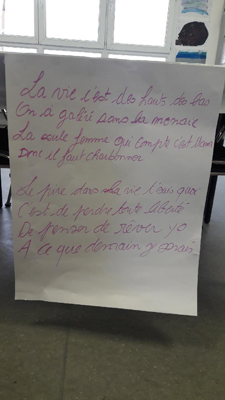 La vie c'est des hauts des bas
On a grandi dans la menace
La seule femme qui compte c'est Mama
Donc il faut charbonner
Le pire dans la vie tu sais quoi
C'est de perdre toute liberté
De penser de rêver yo
A ce que demain y serais